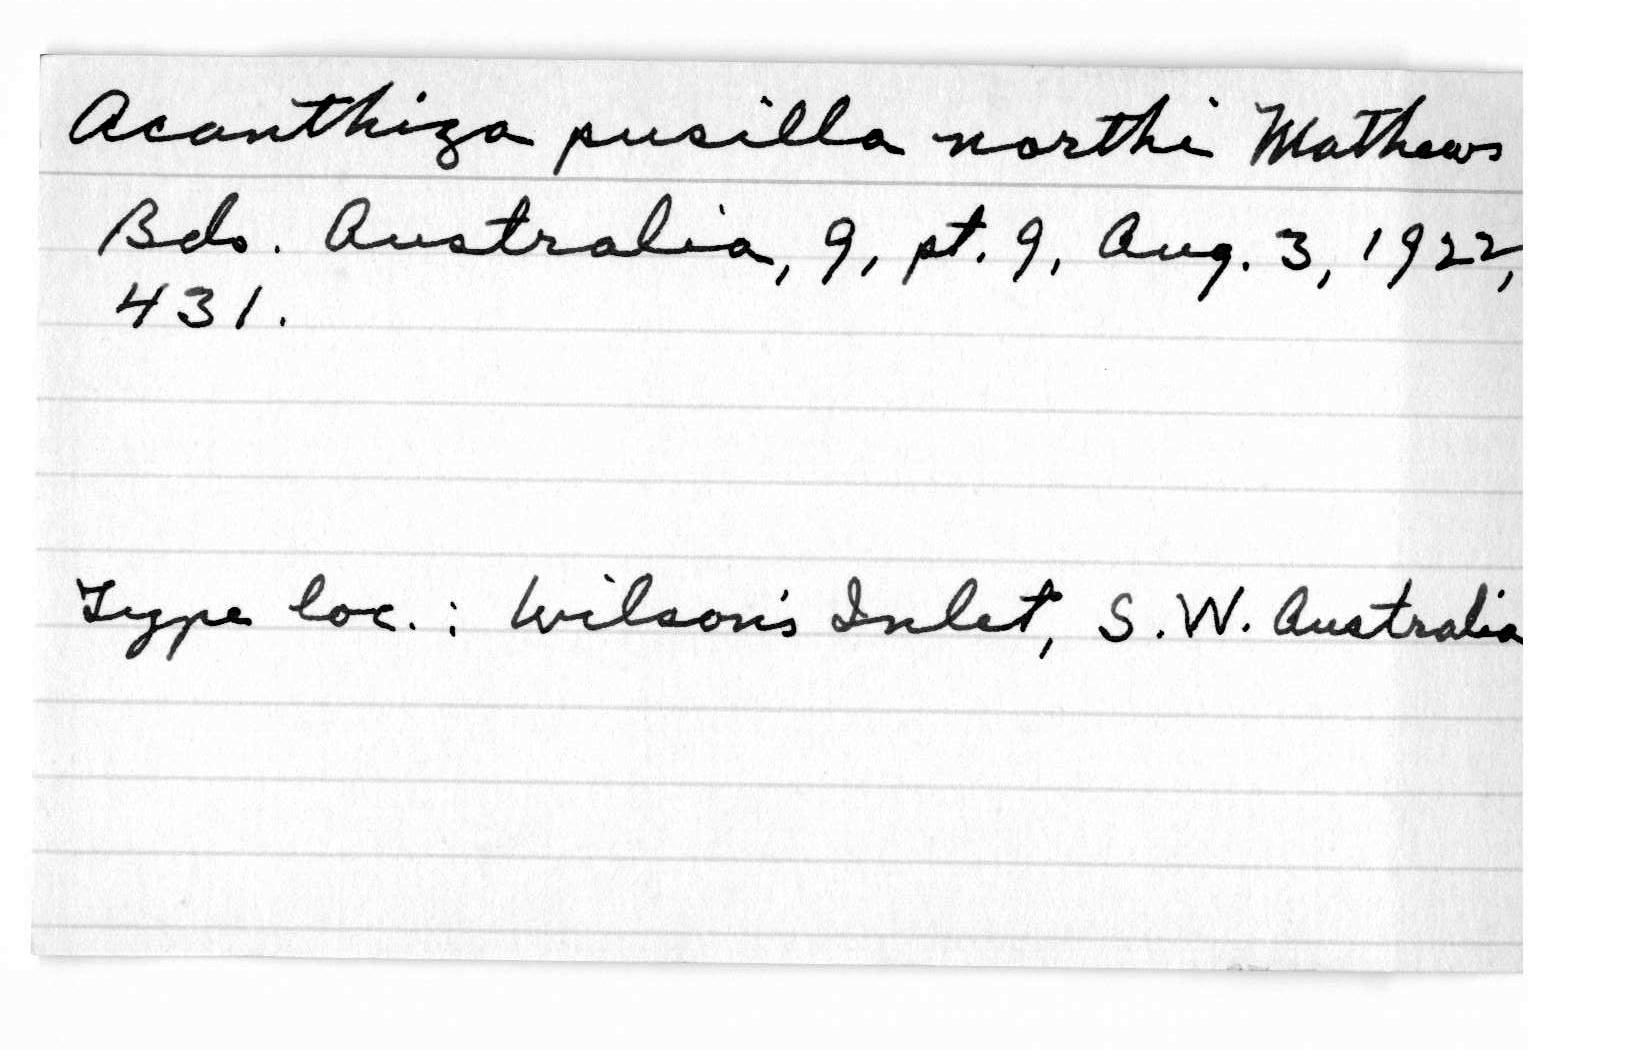 Acanthiza pusilla northi Mathews
Bds. Australia, 9, pt. 9, Aug. 3, 1922,
431.
Type loc. : Wilson's Inlet, S. W. Australia